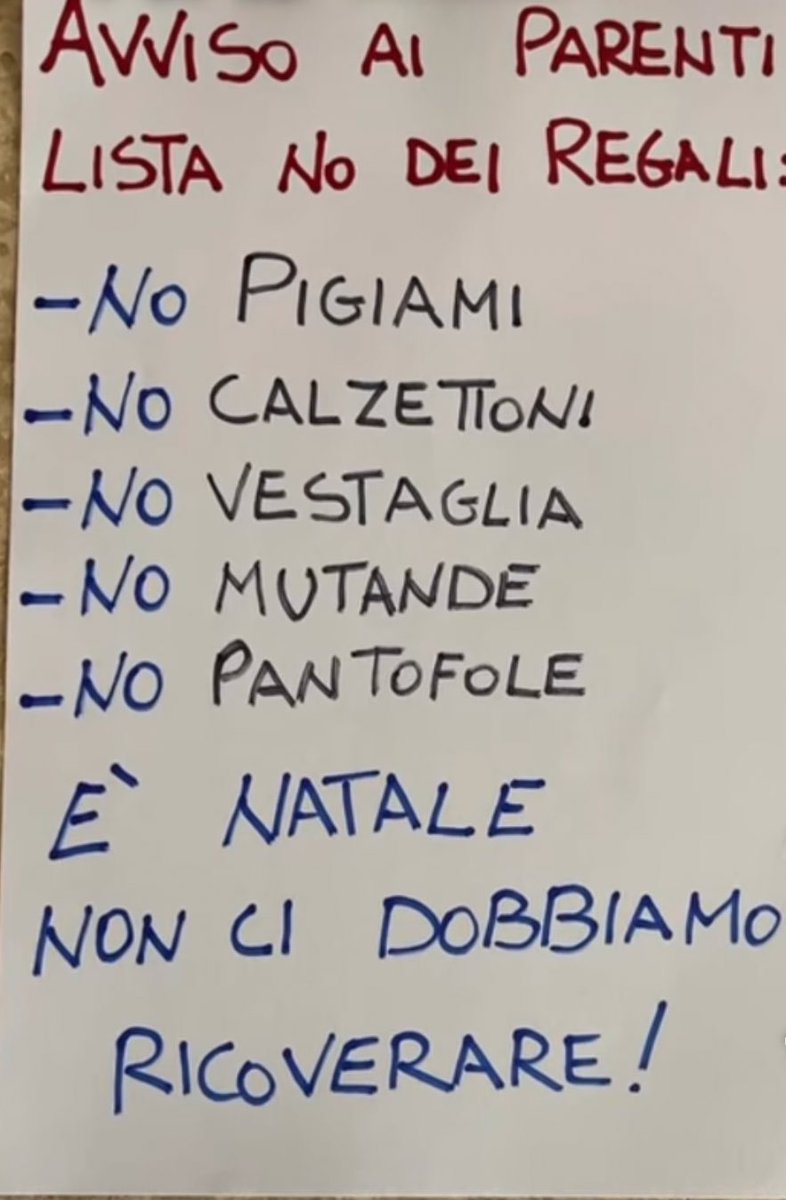 AVVISO AI PARENTI
LISTA NO DEI REGALI:
-NO PIGIAMI
-NO CALZETTONI
-NO VESTAGLIA
-NO MUTANDE
-NO PANTOFOLE
E` NATALE
NON CI DOBBIAMO
RICOVERARE!